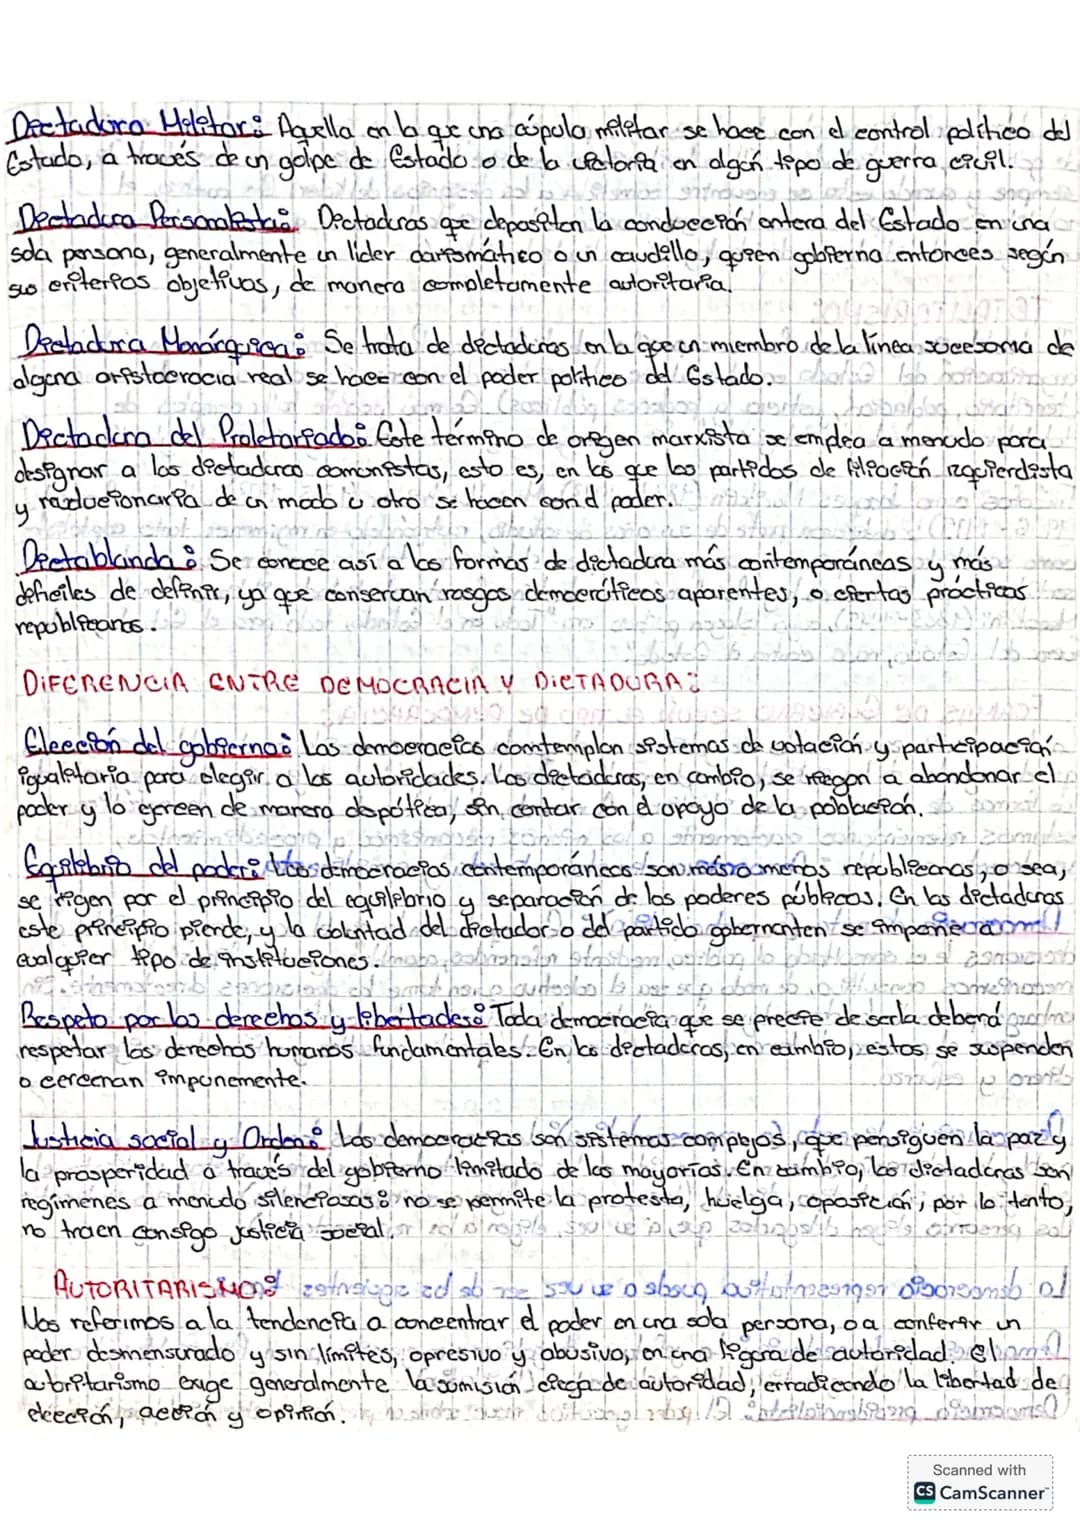 Dictadura Militar: Aquella en la que una cúpula militar se hace con el control político del
Estado, a través de un golpe de Estado o de la victoria en algún tipo de guerra civil.
Dictadura Personalista: Dictaduras que depositan la conducción entera del Estado en una
sola persona, generalmente un líder carismático o un caudillo, quien gobierna entonces según
sus criterios objetivos, de manera completamente autoritaria.
Dictadura Monárquica: Se trata de dictaduras en la que un miembro de la línea sucesoria de
alguna aristocracia real se hace con el poder político del Estado.
Dictadura del Proletariado: Este término de origen marxista se emplea a menudo para
designar a las dictaduras comunistas, esto es, en las que los partidos de filiación izquierdista
y revolucionaria de un modo u otro se hacen con el poder.
Dictablanda: Se conoce así a las formas de dictadura más contemporáneas y más
difíciles de definir, ya que conservan rasgos democráticos aparentes, o ciertas prácticas
republicanas.
DIFERENCIA ENTRE DEMOCRACIA Y DICTADURA:
Elección del gobierno: Las democracias comtemplan sistemas de votación y participación
igualitaria para elegir a las autoridades. Las dictaduras, en cambio, se niegan a abandonar el
poder y lo ejercen de manera despótica, sin contar con el apoyo de la población.
Equilibrio del poder: Las democracias contemporáneas son más o menos republicanas, o sea,
se rigen por el principio del equilibrio y separación de los poderes públicos. En las dictaduras
este principio pierde, y la voluntad del dictador o del partido gobernanten se impone a
cualquier tipo de instituciones.
Respeto por los derechos y libertades: Toda democracia que se precie de serla deberá
respetar los derechos humanos fundamentales. En las dictaduras, en cambio, estos se suspenden
o cercenan impunemente.
Justicia social y Orden: Las democracias son sistemas complejos, que persiguen la paz y
la prosperidad a través del gobierno limitado de las mayorías. En cambio, las dictaduras son
regímenes a menudo silenciosas: no se permite la protesta, huelga, oposición, por lo tanto,
no traen consigo justicia social.
AUTORITARISMO:
Nos referimos a la tendencia a concentrar el poder en una sola persona, o a conferir un
poder desmensurado y sin límites, opresivo y abusivo, en una figura de autoridad. El
autoritarismo exige generalmente la sumisión ciega de autoridad, erradicando la libertad de
elección, acción y opinión.
Scanned with
CS CamScanner